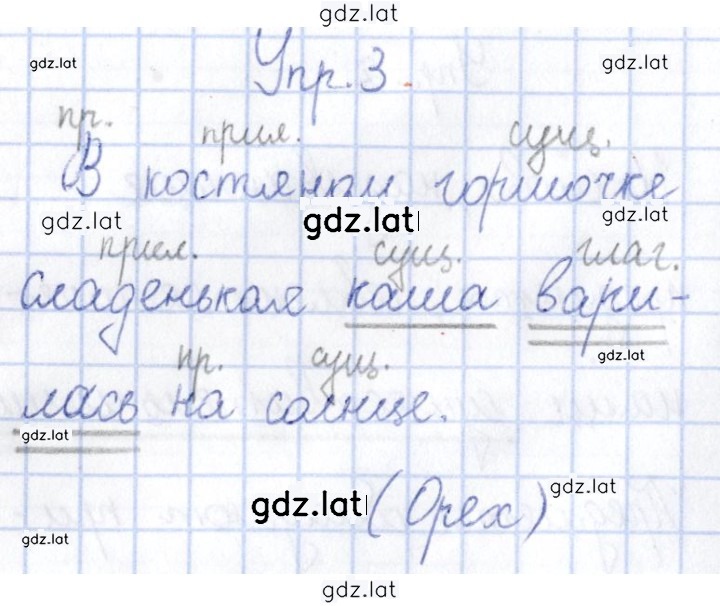 gdz.lat
gdz.lat
Упр. 3.
gdz.lat
пр. прил. сущ.
В костяном горшочке
gdz.lat
gdz.lat
gdz.lat
прил. сущ. глаг.
сладенькая каша вари-
gdz.lat
пр. сущ.
лась на солнце.
gdz.lat
gdz.lat
(Орех)
gdz.lat
gdz.lat
gdz.lat